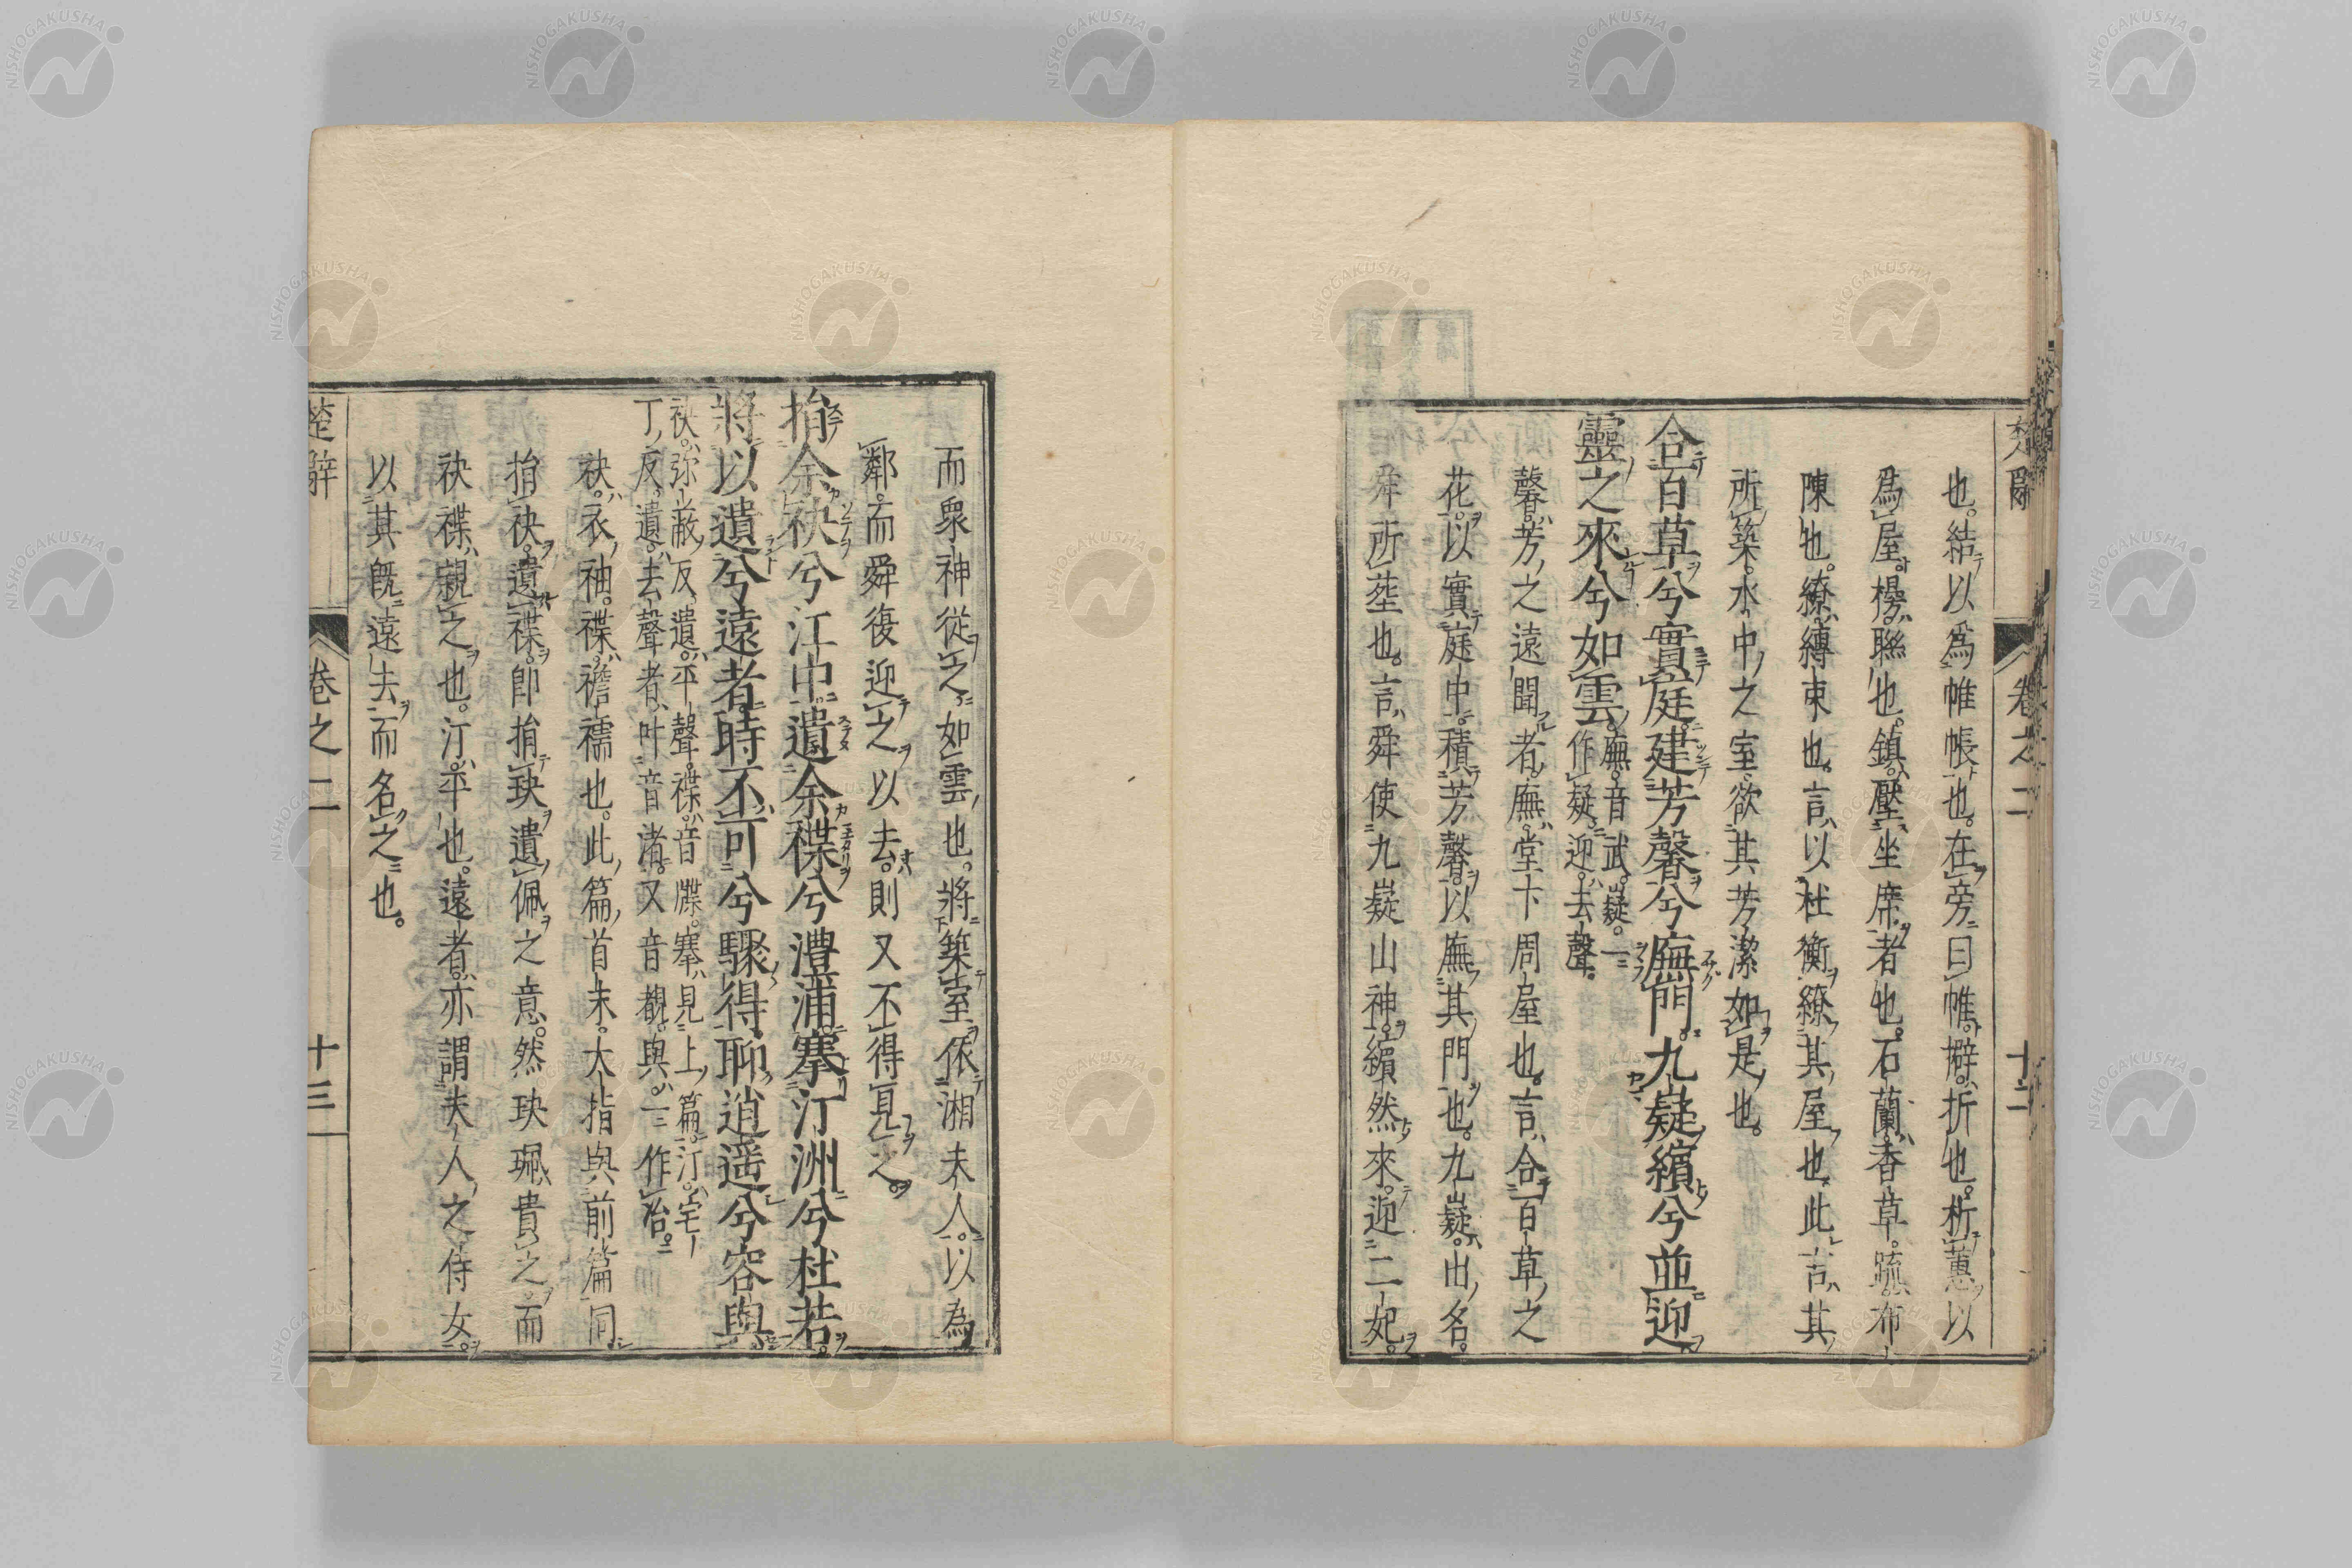 也。結以爲帷帳也。在旁曰帷。擗折也。析蕙以
爲屋櫋聯也。鎮壓坐席者也。石蘭香草。疏布
陳也。繚縛束也。言以杜衡繚其屋也。此言其
所築水中之室欲其芳潔如是也。
合百草兮實庭建芳馨兮廡門。九嶷繽兮並迎
靈之來兮如雲。廡音武。嶷。一
作疑。迎。去聲。
馨芳之遠聞者。廡堂下周屋也。言合百草之
花。以實庭中。積芳馨。以廡其門也。九嶷。山名。
舜所葬也。言舜使九嶷山神繽然來迎二妃。
卷之二
十二
而衆神從之如雲也。將築室依湘夫人。以為
鄰。而舜復迎之以去。則又不得見之。
捐余袂兮江中遺余褋兮澧浦搴汀洲兮杜若。
將以遺兮遠者時不可兮驟得聊逍遥兮容與
袂。弥蔽反。遺。平聲。褋。音牒。搴見上篇。汀。宅
丁反。遺。去聲者叶音渚。又音覩。與。一作冶。
袂。衣袖。褋襜襦也。此篇首末。大指與前篇同
捐袂。遺褋。即捐玦遺佩之意。然玦珮貴之。而
袂褋親之也。汀平也。遠者亦謂夫人之侍女。
以其既遠去而名之也。
楚辭
卷之二
十三
NISHOGAKUSHA